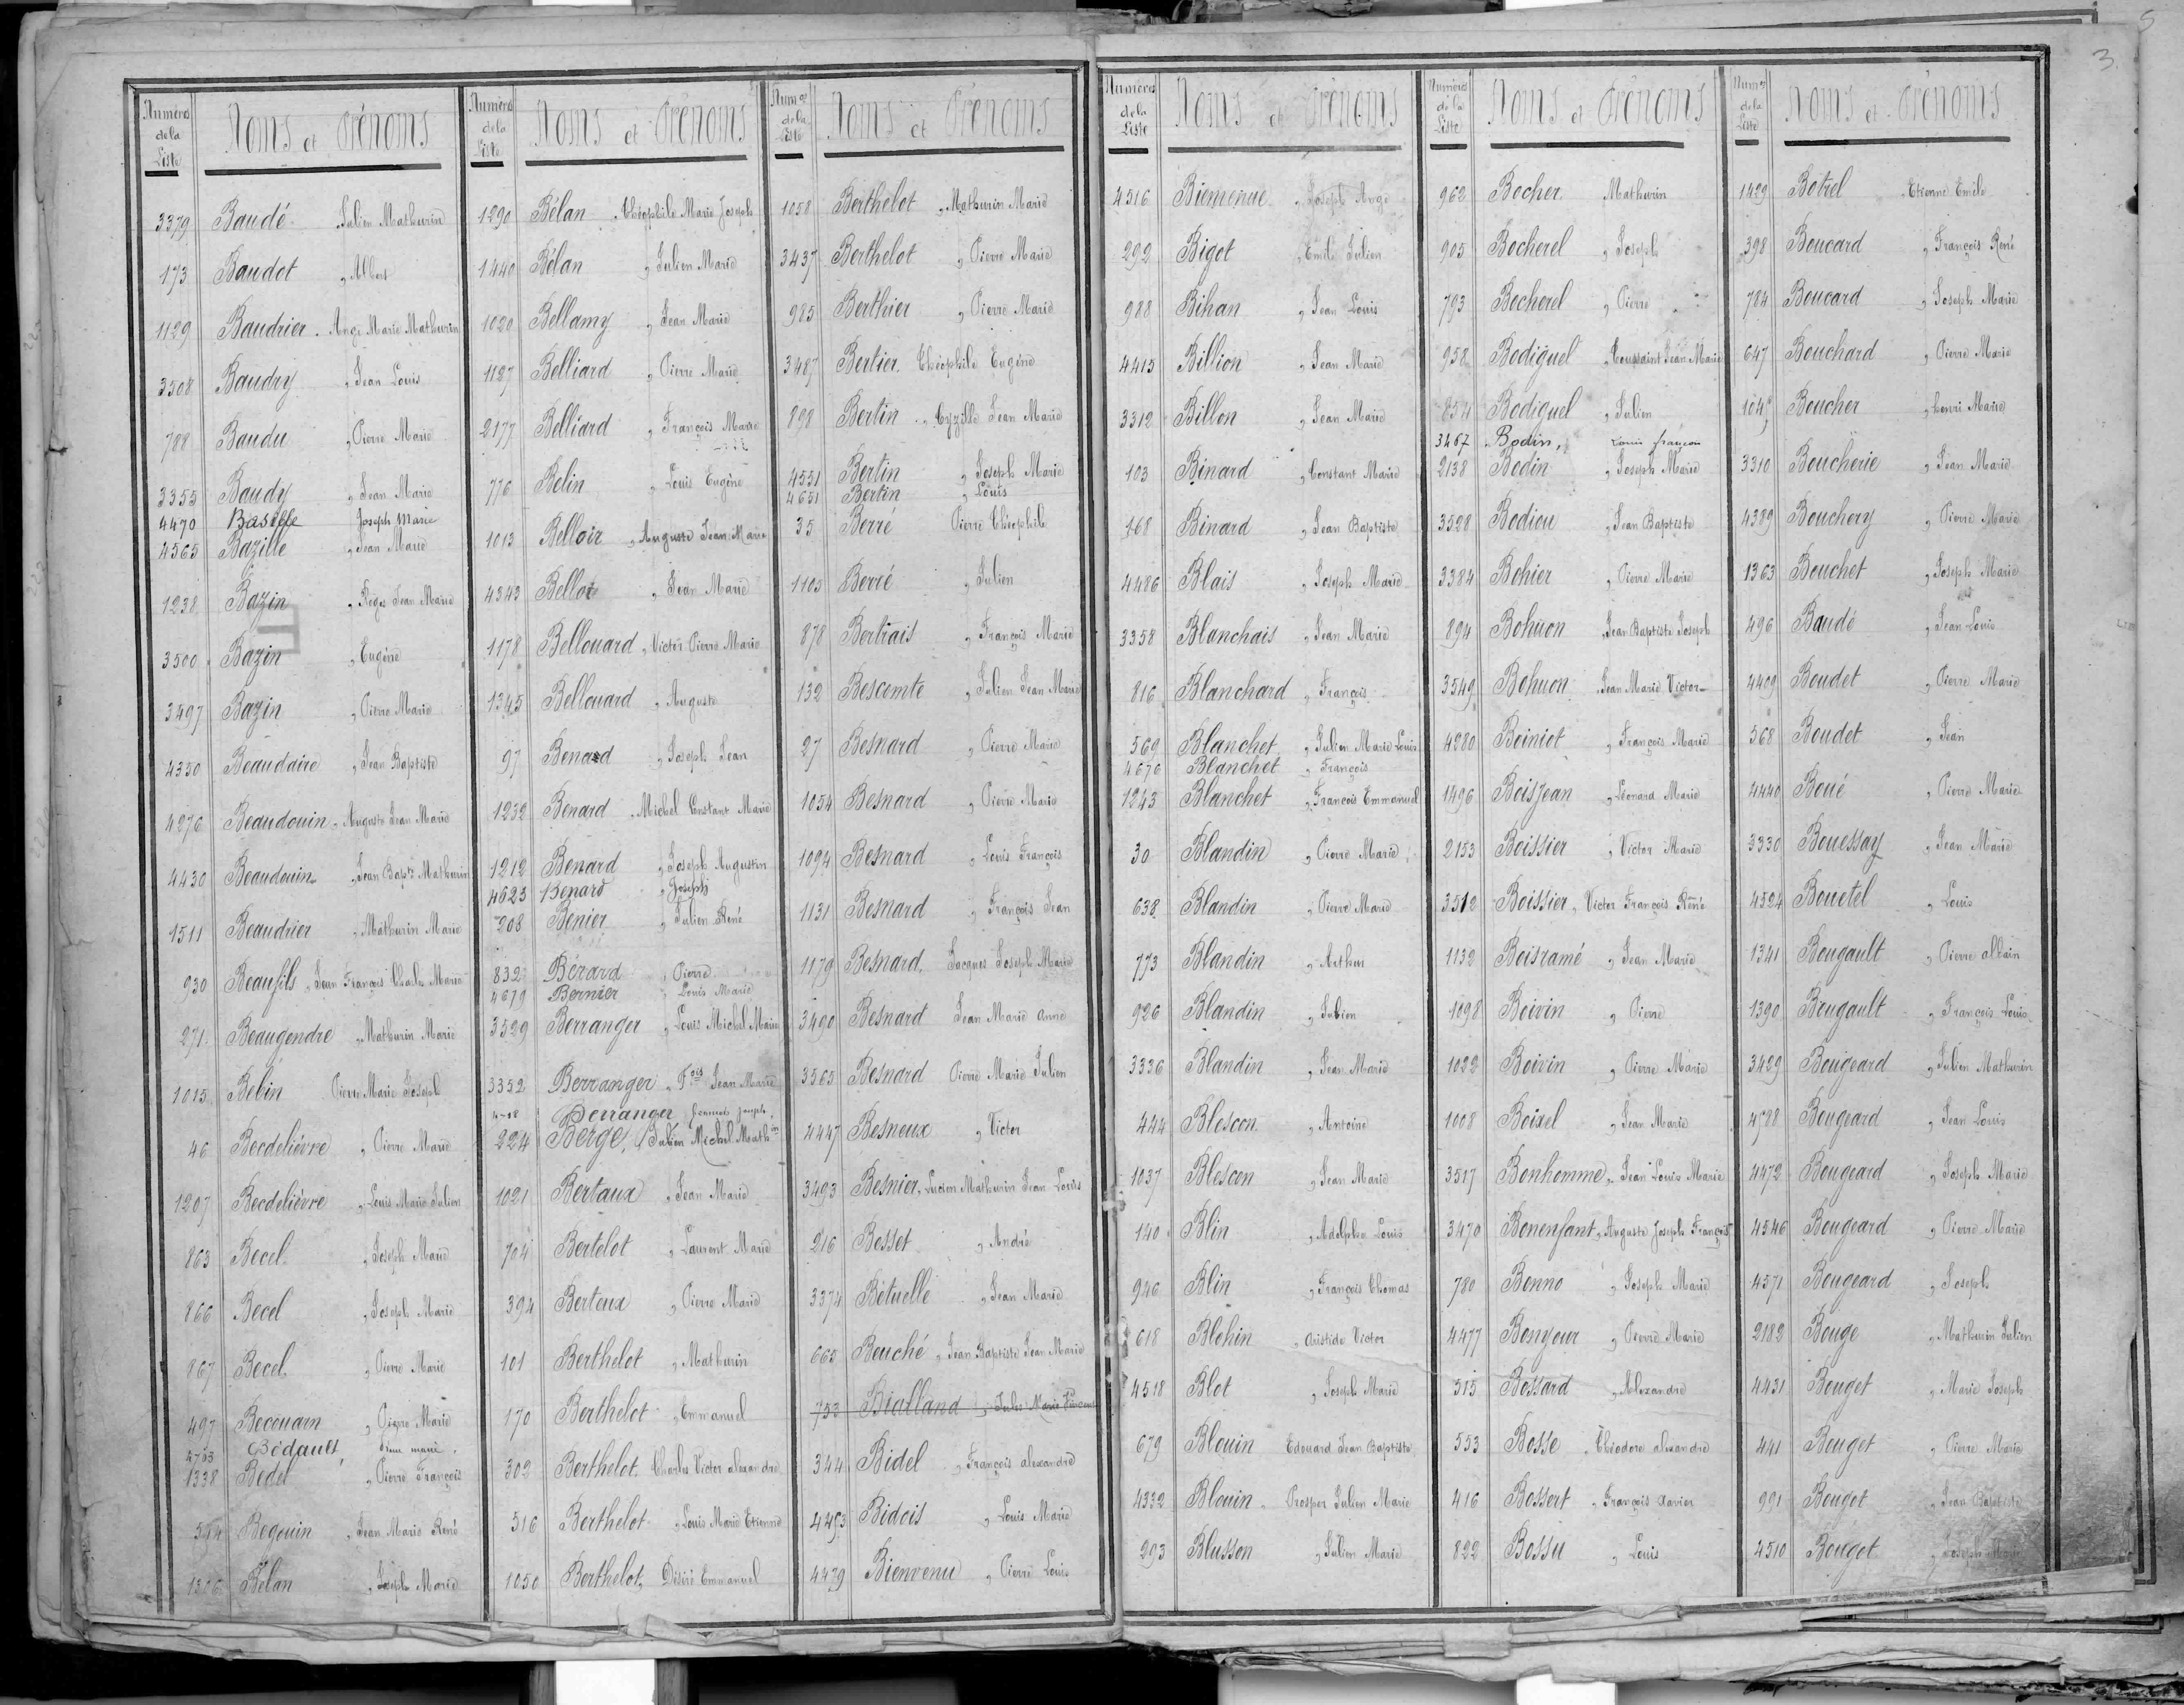 3
Numéros de la Liste Noms et Prénoms
3379 Baudé Julien Mathurin
173 Baudot Albert
1129 Baudrier Ange Marie Mathurin
3508 Baudry Jean Louis
788 Baudu Pierre Marie
3355 Baudy Jean Marie
4470 Basille Joseph Marie
4565 Bazille Jean Marie
1238 Bazin Jean Marie
3500 Bazin Eugène
3497 Bazin Pierre Marie
4350 Beaudaire Jean Baptiste
4276 Beaudouin Auguste Jean Marie
4430 Beaudouin Jean Bapte Mathurin
1511 Beaudrier Mathurin Marie
930 Beaufils Jean François Charles Marie
271 Beaugendre Mathurin Marie
1015 Bebin Pierre Marie Joseph
46 Becdelièvre Pierre Marie
1207 Becdelièvre Louis Marie Julien
863 Becel Joseph Marie
866 Becel Joseph Marie
867 Becel Pierre Marie
497 Becouarn Pierre Marie
Bédault Jean Marie
1338 Bedel Pierre François
554 Begouin Jean Marie René
1306 Bélan Joseph Marie
Numéros de la Liste Noms et Prénoms
1290 Bélan Théophile Marie Joseph
1440 Bélan Julien Marie
1020 Bellamy Jean Marie
1127 Belliard Pierre Marie
2177 Belliard François Marie
776 Belin Louis Eugène
1013 Belloir Auguste Jean Marie
4343 Bellot Jean Marie
1178 Bellouard Victor Pierre Marie
1345 Bellouard Auguste
97 Benard Joseph Jean
1232 Benard Michel Constant Marie
1212 Benard Joseph Augustin
4623 Benard Joseph
208 Benier Julien René
832 Bérard Pierre
4679 Bernier Louis Marie
3529 Berranger Louis Michel Marie
3352 Berranger Fois Jean Marie
Berranger Joseph
224 Berge, Julien Michel Mathin
1021 Bertaux Jean Marie
704 Bertelot Laurent Marie
394 Berteux Pierre Marie
101 Berthelot Mathurin
170 Berthelot Emmanuel
302 Berthelot Charles Victor alexandre
516 Berthelot Louis Marie Etienne
1050 Berthelot Désiré Emmanuel
Numos de la Liste Noms et Prénoms
1058 Berthelot Mathurin Marie
3437 Berthelot Pierre Marie
985 Berthier Pierre Marie
3487 Bertier Théophile Eugène
898 Bertin Cyzille Jean Marie
4551 Bertin Joseph Marie
4651 Bertin Louis
35 Berré Pierre Théophile
1105 Berré Julien
878 Bertrais François Marie
132 Bescomte Julien Jean Marie
27 Besnard Pierre Marie
1054 Besnard Pierre Marie
1094 Besnard Louis François
1131 Besnard François Jean
1179 Besnard Jacques Joseph Marie
3490 Besnard Jean Marie Anne
3565 Besnard Pierre Marie Julien
4447 Besneux Victor
3493 Besnier Lucien Mathurin Jean Louis
216 Besset André
3374 Bétuelle Jean Marie
665 Beuché Jean Baptiste Jean Marie
753 Bialland Jules Marie
344 Bidel François alexandre
4493 Bidois Louis Marie
4479 Bienvenu Pierre Louis
Numéros de la Liste Noms et Prénoms
4516 Bienvenue Joseph Ange
292 Bigot Emile Julien
988 Bihan Jean Louis
4415 Billion Jean Marie
3312 Billon Jean Marie
103 Binard Constant Marie
168 Binard Jean Baptiste
4486 Blais Joseph Marie
3358 Blanchais Jean Marie
816 Blanchard François
569 Blanchet Julien Marie Louis
4676 Blanchet François
1243 Blanchet François Emmanuel
30 Blandin Pierre Marie
638 Blandin Pierre Marie
773 Blandin Arthur
926 Blandin Julien
3336 Blandin Jean Marie
444 Blescon Antoine
1037 Blescon Jean Marie
140 Blin Adolphe Louis
946 Blin François Thomas
618 Blehin Aristide Victor
4518 Blot Joseph Marie
679 Blouin Edouard Jean Baptiste
4332 Blouin Prosper Julien Marie
293 Blusson Julien Marie
Numéros de la Liste Noms et Prénoms
962 Bocher Mathurin
905 Bocherel Joseph
793 Bocherel Pierre
958 Bodiguel Toussaint Jean Marie
854 Bodiguel Julien
3467 Bodin, Louis françois
2138 Bodin Joseph Marie
3528 Bodiou Jean Baptiste
3384 Bohier Pierre Marie
894 Bohuon Jean Baptiste Joseph
3549 Bohuon Jean Marie Victor
4280 Boiniot François Marie
1496 Boisjean Léonard Marie
2153 Boissier Victor Marie
3512 Boissier Victor François René
1132 Boisramé Jean Marie
1098 Boivin Pierre
1022 Boivin Pierre Marie
1008 Boixel Jean Marie
3517 Bonhomme Jean Louis Marie
3470 Bonenfant Auguste Joseph François
780 Bonno Joseph Marie
4477 Bonjour Pierre Marie
515 Bossard Alexandre
553 Bosse Théodore alexandre
416 Bossert François Xavier
822 Bossu Louis
Numos de la Liste Noms et Prénoms
1429 Botrel Etienne Emile
398 Boucard François René
784 Boucard Joseph Marie
647 Bouchard Pierre Marie
Boucher Henri Marie
3310 Boucherie Jean Marie
4389 Bouchery Pierre Marie
1363 Bouchet Joseph Marie
496 Baudé Jean Louis
4409 Boudet Pierre Marie
568 Boudet Jean
4440 Boué Pierre Marie
3330 Bouessay Jean Marie
4524 Bouetel Louis
1341 Bougault Pierre
1390 Bougault François Louis
3429 Bougeard Julien Mathurin
4588 Bougeard Jean Louis
4472 Bougeard Joseph Marie
4546 Bougeard Pierre Marie
4371 Bougeard Joseph
2182 Bouge Mathurin Julien
4431 Bouget Marie Joseph
441 Bouget Pierre Marie
991 Bougot Jean Baptiste
4510 Bougot Joseph Marie